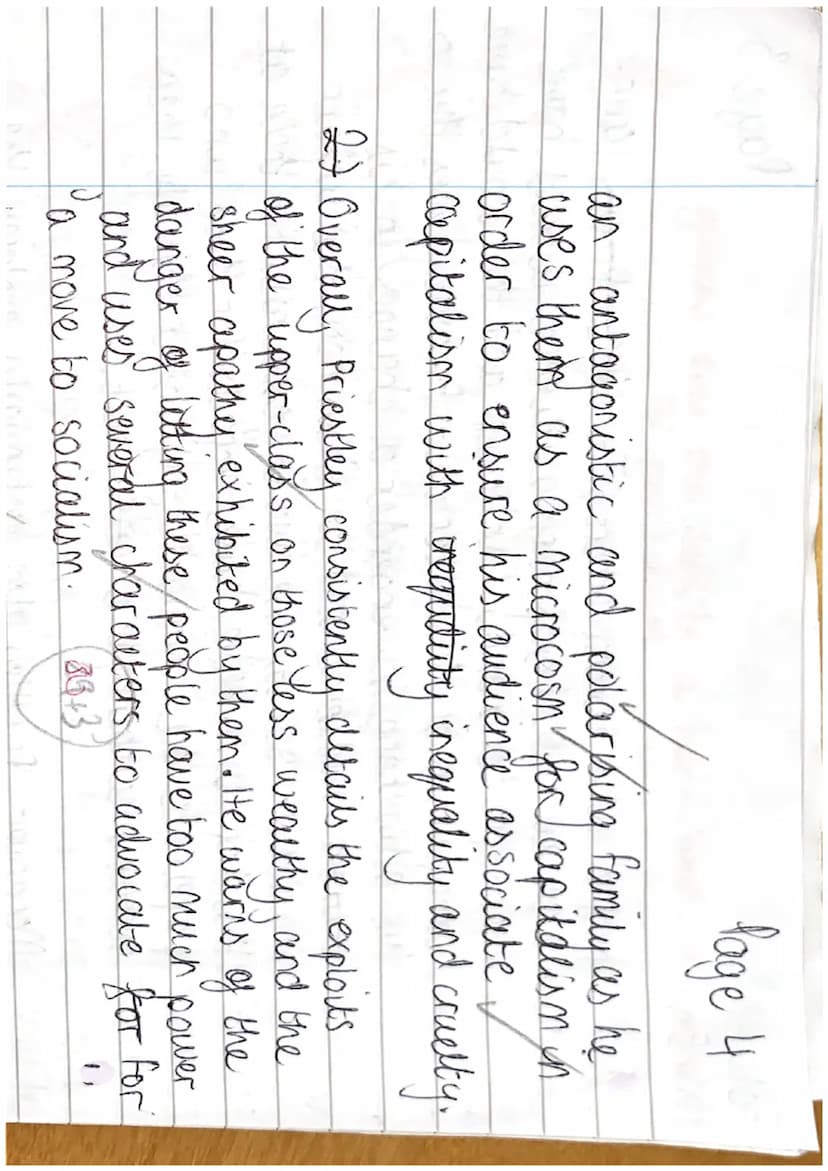 Page 4
an antagonistic and polarising family as he
uses them as a microcosm for capitalism in
order to ensure his audience associate
capitalism with inequality inequality and cruelty.
2) Overall, Priestley consistently details the exploits
of the upper-class on those less wealthy, and the
sheer apathy exhibited by them. He warns of the
danger of letting these people have too much power
and uses several characters to advocate for for
a move to socialism.